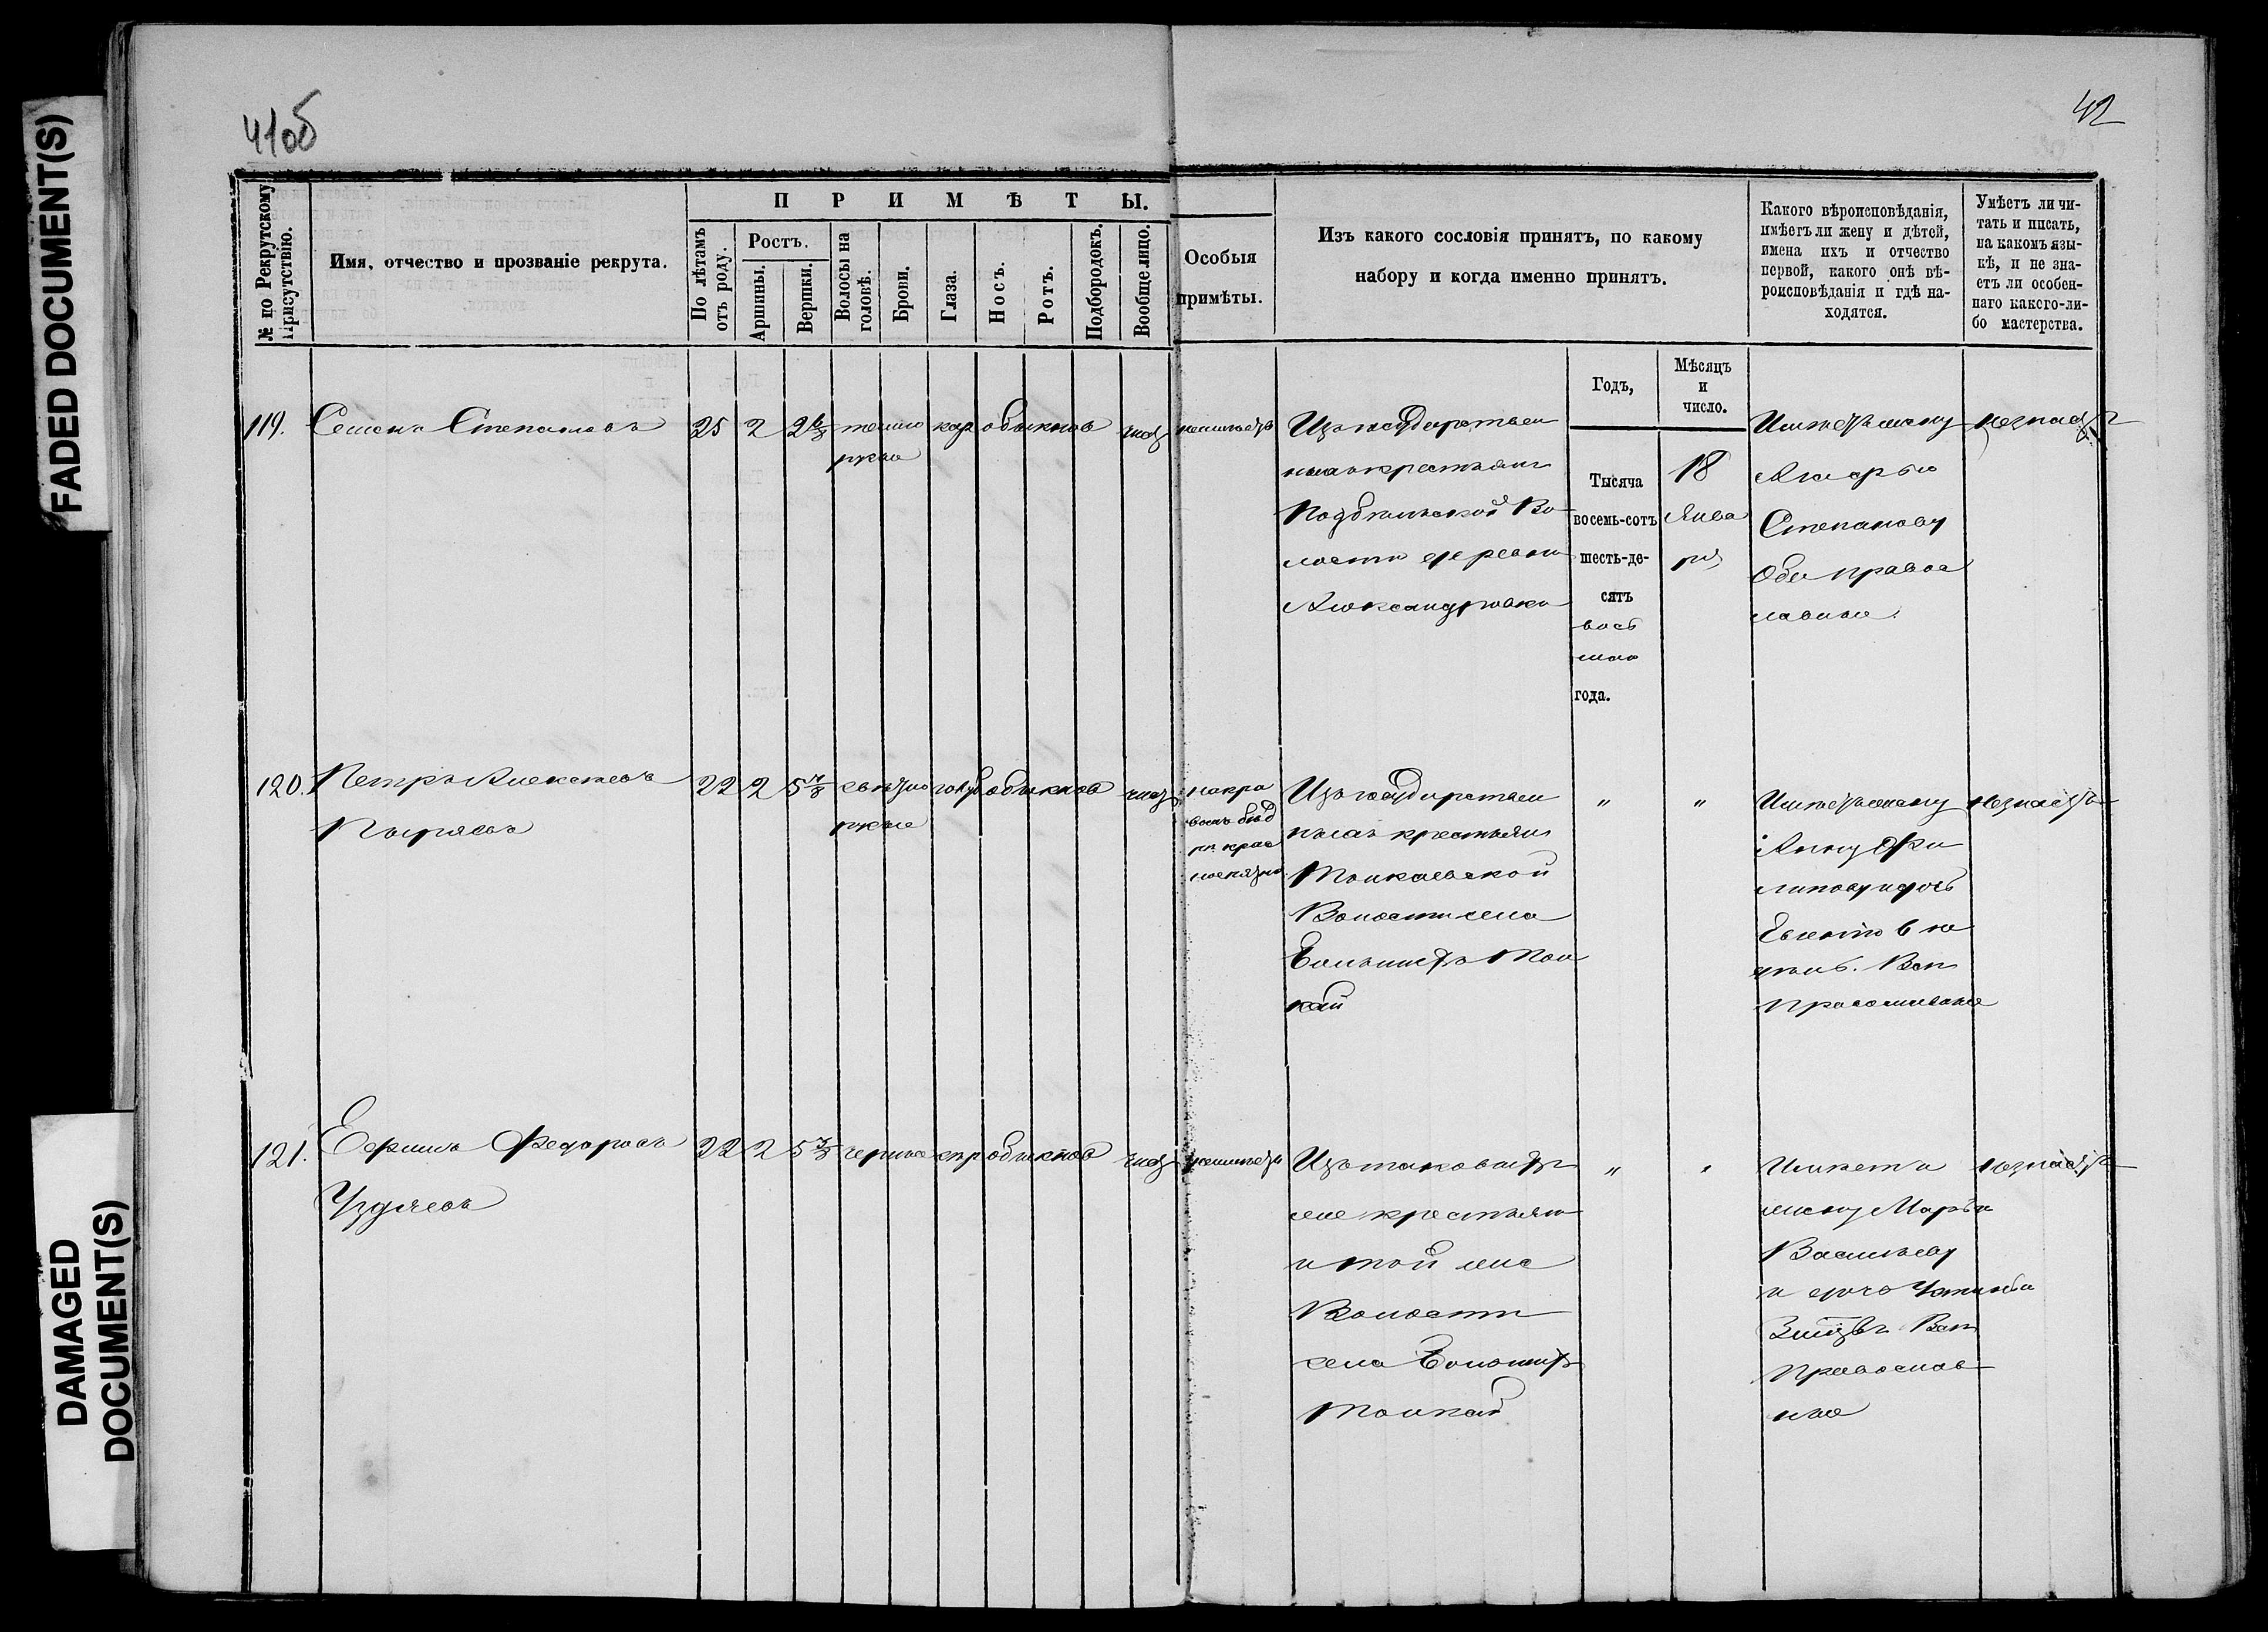 FADED DOCUMENT(S)
DAMAGED
DOCUMENT(S)
41об
42
№ по Рекрутскому
Присутствію.
Имя, отчество и прозваніе рекрута.
ПРИМѢТЫ.
По лѣтамъ
отъ роду.
Ростъ.
Аршины.
Вершки.
Волосы на
головѣ.
Брови.
Глаза.
Носъ.
Ротъ.
Подбородокъ.
Вообще лицо.
Особыя
примѣты.
Изъ какого сословія принятъ, по какому
набору и когда именно принятъ.
Какого вѣроисповѣданія,
имѣетъ ли жену и дѣтей,
имена ихъ и отчество
первой, какого онѣ вѣ-
роисповѣданія и гдѣ на-
ходятся.
Умѣетъ ли чи-
тать и писать,
на какомъ язы-
кѣ, и не зна-
етъ ли особен-
наго какого-ли-
бо мастерства.
Годъ,
Мѣсяцъ
и
число.
119. Семенъ Степановъ 25 2 2 6/8 темно кар обыкнов чист неимѣетъ
русые
Изъ государствен
ныхъ крестьянъ
Подбѣльской Во
лости деревни
Александровки
Тысяча
восемь-сотъ
шесть-де-
сятъ
вось
маго
года.
18
Янва
ря
Имѣетъ жену
Марью
Степанову
Оба правос
лавные.
незнаетъ
120. Петръ Алексѣевъ 22 2 5 4/8 свѣтло голуб обыкнов чист
русые
на пра
вомъ бед
рѣ крас
ное пятно
Изъ государствен
ныхъ крестьянъ
Толкаевской
Волости села
Большихъ Тол
кай
" "
Имѣетъ жену
Анну Фи
липову и дочь
Всѣ
православные
незнаетъ
121. Ефимъ Федоровъ 22 2 5 3/8 черные сѣр обыкнов чист неимѣетъ
Изъ таковыхъ
же крестьянъ
и той же
Волости
села Большихъ
Толкай
" "
Имѣетъ
жену Марью
Васильеву
и дочь
Всѣ
Православ
ные
незнаетъ